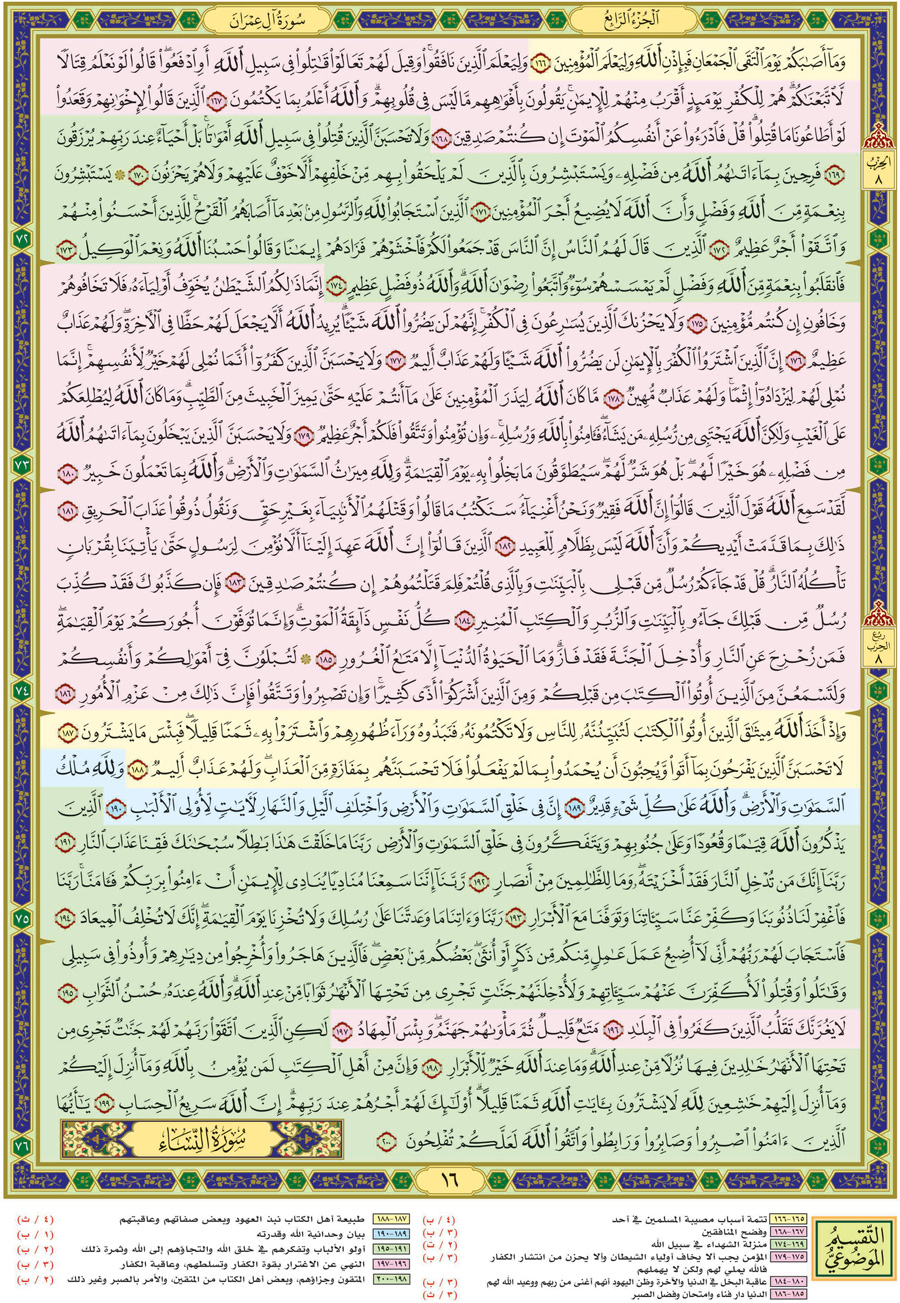 الْجُزْءُ الرَّابِعُ
سُورَةُ آلِ عِمْرَانَ
وَمَآ أَصَٰبَكُمْ يَوْمَ ٱلْتَقَى ٱلْجَمْعَانِ فَبِإِذْنِ ٱللَّهِ وَلِيَعْلَمَ ٱلْمُؤْمِنِينَ ١٦٦ وَلِيَعْلَمَ ٱلَّذِينَ نَافَقُوا۟ۚ وَقِيلَ لَهُمْ تَعَالَوْا۟ قَٰتِلُوا۟ فِى سَبِيلِ ٱللَّهِ أَوِ ٱدْفَعُوا۟ۖ قَالُوا۟ لَوْ نَعْلَمُ قِتَالًا
لَّٱتَّبَعْنَٰكُمْۗ هُمْ لِلْكُفْرِ يَوْمَئِذٍ أَقْرَبُ مِنْهُمْ لِلْإِيمَٰنِۚ يَقُولُونَ بِأَفْوَٰهِهِم مَّا لَيْسَ فِى قُلُوبِهِمْۗ وَٱللَّهُ أَعْلَمُ بِمَا يَكْتُمُونَ ١٦٧ ٱلَّذِينَ قَالُوا۟ لِإِخْوَٰنِهِمْ وَقَعَدُوا۟
لَوْ أَطَاعُونَا مَا قُتِلُوا۟ۗ قُلْ فَٱدْرَءُوا۟ عَنْ أَنفُسِكُمُ ٱلْمَوْتَ إِن كُنتُمْ صَٰدِقِينَ ١٦٨ وَلَا تَحْسَبَنَّ ٱلَّذِينَ قُتِلُوا۟ فِى سَبِيلِ ٱللَّهِ أَمْوَٰتًۢاۚ بَلْ أَحْيَآءٌ عِندَ رَبِّهِمْ يُرْزَقُونَ
١٦٩ فَرِحِينَ بِمَآ ءَاتَىٰهُمُ ٱللَّهُ مِن فَضْلِهِۦ وَيَسْتَبْشِرُونَ بِٱلَّذِينَ لَمْ يَلْحَقُوا۟ بِهِم مِّنْ خَلْفِهِمْ أَلَّا خَوْفٌ عَلَيْهِمْ وَلَا هُمْ يَحْزَنُونَ ١٧٠ ۞ يَسْتَبْشِرُونَ
بِنِعْمَةٍ مِّنَ ٱللَّهِ وَفَضْلٍ وَأَنَّ ٱللَّهَ لَا يُضِيعُ أَجْرَ ٱلْمُؤْمِنِينَ ١٧١ ٱلَّذِينَ ٱسْتَجَابُوا۟ لِلَّهِ وَٱلرَّسُولِ مِنۢ بَعْدِ مَآ أَصَابَهُمُ ٱلْقَرْحُۚ لِلَّذِينَ أَحْسَنُوا۟ مِنْهُمْ
وَٱتَّقَوْا۟ أَجْرٌ عَظِيمٌ ١٧٢ ٱلَّذِينَ قَالَ لَهُمُ ٱلنَّاسُ إِنَّ ٱلنَّاسَ قَدْ جَمَعُوا۟ لَكُمْ فَٱخْشَوْهُمْ فَزَادَهُمْ إِيمَٰنًا وَقَالُوا۟ حَسْبُنَا ٱللَّهُ وَنِعْمَ ٱلْوَكِيلُ ١٧٣
فَٱنقَلَبُوا۟ بِنِعْمَةٍ مِّنَ ٱللَّهِ وَفَضْلٍ لَّمْ يَمْسَسْهُمْ سُوٓءٌ وَٱتَّبَعُوا۟ رِضْوَٰنَ ٱللَّهِۗ وَٱللَّهُ ذُو فَضْلٍ عَظِيمٍ ١٧٤ إِنَّمَا ذَٰلِكُمُ ٱلشَّيْطَٰنُ يُخَوِّفُ أَوْلِيَآءَهُۥ فَلَا تَخَافُوهُمْ
وَخَافُونِ إِن كُنتُم مُّؤْمِنِينَ ١٧٥ وَلَا يَحْزُنكَ ٱلَّذِينَ يُسَٰرِعُونَ فِى ٱلْكُفْرِۚ إِنَّهُمْ لَن يَضُرُّوا۟ ٱللَّهَ شَيْـًٔاۗ يُرِيدُ ٱللَّهُ أَلَّا يَجْعَلَ لَهُمْ حَظًّا فِى ٱلْـَٔاخِرَةِۖ وَلَهُمْ عَذَابٌ
عَظِيمٌ ١٧٦ إِنَّ ٱلَّذِينَ ٱشْتَرَوُا۟ ٱلْكُفْرَ بِٱلْإِيمَٰنِ لَن يَضُرُّوا۟ ٱللَّهَ شَيْـًٔا وَلَهُمْ عَذَابٌ أَلِيمٌ ١٧٧ وَلَا يَحْسَبَنَّ ٱلَّذِينَ كَفَرُوٓا۟ أَنَّمَا نُمْلِى لَهُمْ خَيْرٌ لِّأَنفُسِهِمْۚ إِنَّمَا
نُمْلِى لَهُمْ لِيَزْدَادُوٓا۟ إِثْمًاۚ وَلَهُمْ عَذَابٌ مُّهِينٌ ١٧٨ مَّا كَانَ ٱللَّهُ لِيَذَرَ ٱلْمُؤْمِنِينَ عَلَىٰ مَآ أَنتُمْ عَلَيْهِ حَتَّىٰ يَمِيزَ ٱلْخَبِيثَ مِنَ ٱلطَّيِّبِۗ وَمَا كَانَ ٱللَّهُ لِيُطْلِعَكُمْ
عَلَى ٱلْغَيْبِ وَلَٰكِنَّ ٱللَّهَ يَجْتَبِى مِن رُّسُلِهِۦ مَن يَشَآءُۖ فَـَٔامِنُوا۟ بِٱللَّهِ وَرُسُلِهِۦۚ وَإِن تُؤْمِنُوا۟ وَتَتَّقُوا۟ فَلَكُمْ أَجْرٌ عَظِيمٌ ١٧٩ وَلَا يَحْسَبَنَّ ٱلَّذِينَ يَبْخَلُونَ بِمَآ ءَاتَىٰهُمُ ٱللَّهُ
مِن فَضْلِهِۦ هُوَ خَيْرًا لَّهُمۖ بَلْ هُوَ شَرٌّ لَّهُمْۖ سَيُطَوَّقُونَ مَا بَخِلُوا۟ بِهِۦ يَوْمَ ٱلْقِيَٰمَةِۗ وَلِلَّهِ مِيرَٰثُ ٱلسَّمَٰوَٰتِ وَٱلْأَرْضِۗ وَٱللَّهُ بِمَا تَعْمَلُونَ خَبِيرٌ ١٨٠
لَّقَدْ سَمِعَ ٱللَّهُ قَوْلَ ٱلَّذِينَ قَالُوٓا۟ إِنَّ ٱللَّهَ فَقِيرٌ وَنَحْنُ أَغْنِيَآءُۘ سَنَكْتُبُ مَا قَالُوا۟ وَقَتْلَهُمُ ٱلْأَنۢبِيَآءَ بِغَيْرِ حَقٍّ وَنَقُولُ ذُوقُوا۟ عَذَابَ ٱلْحَرِيقِ ١٨١
ذَٰلِكَ بِمَا قَدَّمَتْ أَيْدِيكُمْ وَأَنَّ ٱللَّهَ لَيْسَ بِظَلَّامٍ لِّلْعَبِيدِ ١٨٢ ٱلَّذِينَ قَالُوٓا۟ إِنَّ ٱللَّهَ عَهِدَ إِلَيْنَآ أَلَّا نُؤْمِنَ لِرَسُولٍ حَتَّىٰ يَأْتِيَنَا بِقُرْبَانٍ
تَأْكُلُهُ ٱلنَّارُۗ قُلْ قَدْ جَآءَكُمْ رُسُلٌ مِّن قَبْلِى بِٱلْبَيِّنَٰتِ وَبِٱلَّذِى قُلْتُمْ فَلِمَ قَتَلْتُمُوهُمْ إِن كُنتُمْ صَٰدِقِينَ ١٨٣ فَإِن كَذَّبُوكَ فَقَدْ كُذِّبَ
رُسُلٌ مِّن قَبْلِكَ جَآءُو بِٱلْبَيِّنَٰتِ وَٱلزُّبُرِ وَٱلْكِتَٰبِ ٱلْمُنِيرِ ١٨٤ كُلُّ نَفْسٍ ذَآئِقَةُ ٱلْمَوْتِۗ وَإِنَّمَا تُوَفَّوْنَ أُجُورَكُمْ يَوْمَ ٱلْقِيَٰمَةِۖ
فَمَن زُحْزِحَ عَنِ ٱلنَّارِ وَأُدْخِلَ ٱلْجَنَّةَ فَقَدْ فَازَۗ وَمَا ٱلْحَيَوٰةُ ٱلدُّنْيَآ إِلَّا مَتَٰعُ ٱلْغُرُورِ ١٨٥ ۞ لَتُبْلَوُنَّ فِىٓ أَمْوَٰلِكُمْ وَأَنفُسِكُمْ
وَلَتَسْمَعُنَّ مِنَ ٱلَّذِينَ أُوتُوا۟ ٱلْكِتَٰبَ مِن قَبْلِكُمْ وَمِنَ ٱلَّذِينَ أَشْرَكُوٓا۟ أَذًى كَثِيرًاۚ وَإِن تَصْبِرُوا۟ وَتَتَّقُوا۟ فَإِنَّ ذَٰلِكَ مِنْ عَزْمِ ٱلْأُمُورِ ١٨٦
وَإِذْ أَخَذَ ٱللَّهُ مِيثَٰقَ ٱلَّذِينَ أُوتُوا۟ ٱلْكِتَٰبَ لَتُبَيِّنُنَّهُۥ لِلنَّاسِ وَلَا تَكْتُمُونَهُۥ فَنَبَذُوهُ وَرَآءَ ظُهُورِهِمْ وَٱشْتَرَوْا۟ بِهِۦ ثَمَنًا قَلِيلًاۖ فَبِئْسَ مَا يَشْتَرُونَ ١٨٧
لَا تَحْسَبَنَّ ٱلَّذِينَ يَفْرَحُونَ بِمَآ أَتَوا۟ وَّيُحِبُّونَ أَن يُحْمَدُوا۟ بِمَا لَمْ يَفْعَلُوا۟ فَلَا تَحْسَبَنَّهُم بِمَفَازَةٍ مِّنَ ٱلْعَذَابِۖ وَلَهُمْ عَذَابٌ أَلِيمٌ ١٨٨ وَلِلَّهِ مُلْكُ
ٱلسَّمَٰوَٰتِ وَٱلْأَرْضِۗ وَٱللَّهُ عَلَىٰ كُلِّ شَىْءٍ قَدِيرٌ ١٨٩ إِنَّ فِى خَلْقِ ٱلسَّمَٰوَٰتِ وَٱلْأَرْضِ وَٱخْتِلَٰفِ ٱلَّيْلِ وَٱلنَّهَارِ لَـَٔايَٰتٍ لِّأُو۟لِى ٱلْأَلْبَٰبِ ١٩٠ ٱلَّذِينَ
يَذْكُرُونَ ٱللَّهَ قِيَٰمًا وَقُعُودًا وَعَلَىٰ جُنُوبِهِمْ وَيَتَفَكَّرُونَ فِى خَلْقِ ٱلسَّمَٰوَٰتِ وَٱلْأَرْضِ رَبَّنَا مَا خَلَقْتَ هَٰذَا بَٰطِلًا سُبْحَٰنَكَ فَقِنَا عَذَابَ ٱلنَّارِ ١٩١
رَبَّنَآ إِنَّكَ مَن تُدْخِلِ ٱلنَّارَ فَقَدْ أَخْزَيْتَهُۥۖ وَمَا لِلظَّٰلِمِينَ مِنْ أَنصَارٍ ١٩٢ رَّبَّنَآ إِنَّنَا سَمِعْنَا مُنَادِيًا يُنَادِى لِلْإِيمَٰنِ أَنْ ءَامِنُوا۟ بِرَبِّكُمْ فَـَٔامَنَّاۚ رَبَّنَا
فَٱغْفِرْ لَنَا ذُنُوبَنَا وَكَفِّرْ عَنَّا سَيِّـَٔاتِنَا وَتَوَفَّنَا مَعَ ٱلْأَبْرَارِ ١٩٣ رَبَّنَا وَءَاتِنَا مَا وَعَدتَّنَا عَلَىٰ رُسُلِكَ وَلَا تُخْزِنَا يَوْمَ ٱلْقِيَٰمَةِۗ إِنَّكَ لَا تُخْلِفُ ٱلْمِيعَادَ ١٩٤
فَٱسْتَجَابَ لَهُمْ رَبُّهُمْ أَنِّى لَآ أُضِيعُ عَمَلَ عَٰمِلٍ مِّنكُم مِّن ذَكَرٍ أَوْ أُنثَىٰۖ بَعْضُكُم مِّنۢ بَعْضٍۖ فَٱلَّذِينَ هَاجَرُوا۟ وَأُخْرِجُوا۟ مِن دِيَٰرِهِمْ وَأُوذُوا۟ فِى سَبِيلِى
وَقَٰتَلُوا۟ وَقُتِلُوا۟ لَأُكَفِّرَنَّ عَنْهُمْ سَيِّـَٔاتِهِمْ وَلَأُدْخِلَنَّهُمْ جَنَّٰتٍ تَجْرِى مِن تَحْتِهَا ٱلْأَنْهَٰرُ ثَوَابًا مِّنْ عِندِ ٱللَّهِۗ وَٱللَّهُ عِندَهُۥ حُسْنُ ٱلثَّوَابِ ١٩٥
لَا يَغُرَّنَّكَ تَقَلُّبُ ٱلَّذِينَ كَفَرُوا۟ فِى ٱلْبِلَٰدِ ١٩٦ مَتَٰعٌ قَلِيلٌ ثُمَّ مَأْوَىٰهُمْ جَهَنَّمُۚ وَبِئْسَ ٱلْمِهَادُ ١٩٧ لَٰكِنِ ٱلَّذِينَ ٱتَّقَوْا۟ رَبَّهُمْ لَهُمْ جَنَّٰتٌ تَجْرِى مِن
تَحْتِهَا ٱلْأَنْهَٰرُ خَٰلِدِينَ فِيهَا نُزُلًا مِّنْ عِندِ ٱللَّهِۗ وَمَا عِندَ ٱللَّهِ خَيْرٌ لِّلْأَبْرَارِ ١٩٨ وَإِنَّ مِنْ أَهْلِ ٱلْكِتَٰبِ لَمَن يُؤْمِنُ بِٱللَّهِ وَمَآ أُنزِلَ إِلَيْكُمْ
وَمَآ أُنزِلَ إِلَيْهِمْ خَٰشِعِينَ لِلَّهِ لَا يَشْتَرُونَ بِـَٔايَٰتِ ٱللَّهِ ثَمَنًا قَلِيلًاۗ أُو۟لَٰٓئِكَ لَهُمْ أَجْرُهُمْ عِندَ رَبِّهِمْۗ إِنَّ ٱللَّهَ سَرِيعُ ٱلْحِسَابِ ١٩٩ يَٰٓأَيُّهَا
ٱلَّذِينَ ءَامَنُوا۟ ٱصْبِرُوا۟ وَصَابِرُوا۟ وَرَابِطُوا۟ وَٱتَّقُوا۟ ٱللَّهَ لَعَلَّكُمْ تُفْلِحُونَ ٢٠٠
سُورَةُ النِّسَاءِ
الحزب
٨
ربع
الحزب
٨
٧٢
٧٣
٧٤
٧٥
٧٦
١٦
التَّقْسِيمُ
المَوْضُوعِيُّ
١٦٥-١٦٦ تتمة أسباب مصيبة المسلمين في أحد (٤ / ب)
١٦٧-١٦٨ وفضح المنافقين (٣ / ب)
١٦٩-١٧٤ منزلة الشهداء في سبيل الله (٢ / ت)
١٧٥-١٧٩ المؤمن يجب ألا يخاف أولياء الشيطان وألا يحزن من انتشار الكفار (٣ / ب)
فالله يملي لهم ولكن لا يهملهم
١٨٠-١٨٤ عاقبة البخل في الدنيا والآخرة وظن اليهود أنهم أغنى من ربهم ووعيد الله لهم (٣ / ب)
١٨٥-١٨٦ الدنيا دار فناء وامتحان وفضل الصبر (٣ / ث)
١٨٧-١٨٨ طبيعة أهل الكتاب نبذ العهود وبعض صفاتهم وعاقبتهم (٤ / ث)
١٨٩-١٩٠ بيان وحدانية الله وقدرته (١ / ب)
١٩١-١٩٥ أولو الألباب وتفكرهم في خلق الله والتجاؤهم إلى الله وثمرة ذلك (٢ / ب)
١٩٦-١٩٧ النهي عن الاغترار بقوة الكفار وتسلطهم، وعاقبة الكفار (٣ / ب)
١٩٨-٢٠٠ المتقون وجزاؤهم، وبعض أهل الكتاب من المتقين، والأمر بالصبر وغير ذلك (٢ / ب)